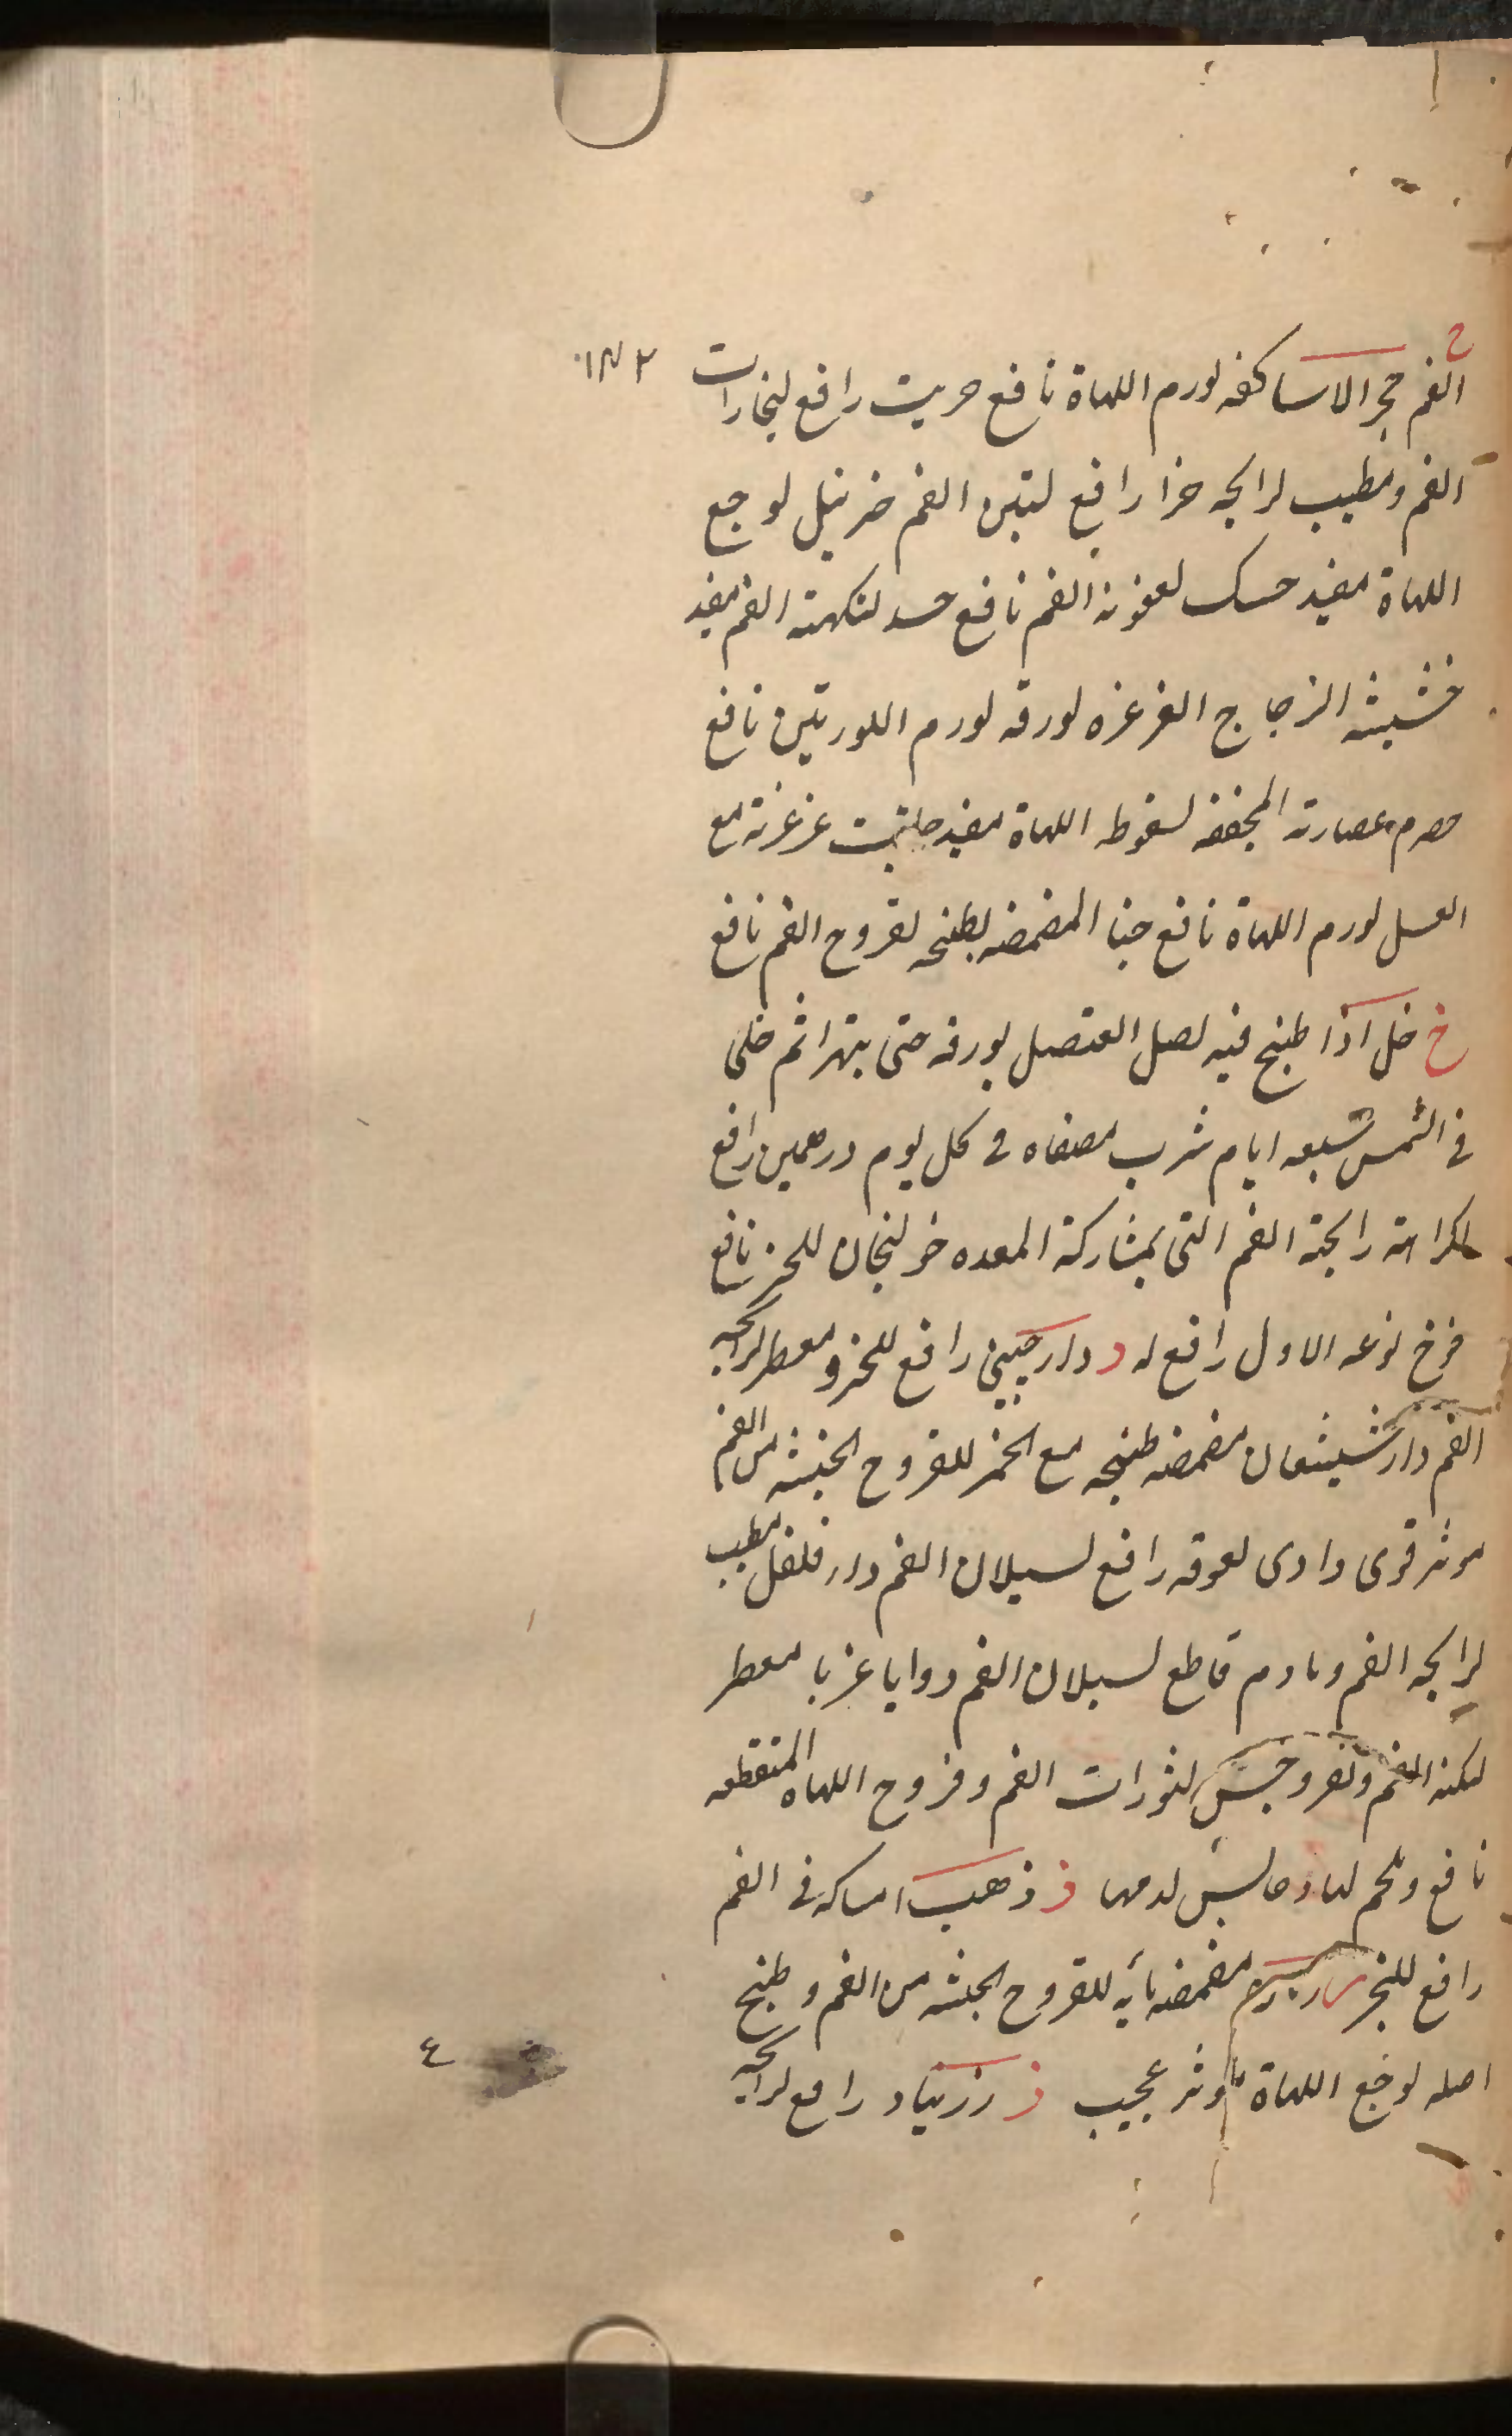 ح
الفم حجر الاساكفه لورم اللهاة نافع حريث رافع لبخارات ١٣٢
الفم ومطيب لرايحه حزا رافع لنتن الفم خرنبل لوجع
اللهاة مفيد حسك لعفونة الفم نافع حسد لنكهته الفم مفيد
خشيشه الزجاج الغرغره لورقه لورم اللوزتين نافع
حصرم عصارته المجففه لسقوط اللهاة مفيد حلتيت غرغرته مع
العسل لورم اللهاة نافع حنا المضمضه بطبخه لقروح الفم نافع
خ خل اذا طبخ فيه بصل العنصل بورقه حتى يتهرا ثم خلى
فى الشمس سبعه ايام شرب مصفاه فى كل يوم درهمين رافع
لكراهته رايحة الفم التى بمشاركة المعده خولنجان للبخر نافع
فرخ نوعه الاول رافع له د دارجينى رافع للبخر ومعطر لرايحه
الفم دارشيشعان مضمضه طبخه مع الخمر للقروح الخبيثه من الفم
موثر قوى دادى لعوقه رافع لسيلان الفم دارفلفل مطيب
لرايحه الفم ونادم قاطع لسيلان الفم دوايا غربا معطر
الفم لثورات الفم وقروح اللهاه المتقطعه
نافع وملحم لها وحابس لدمها ذ ذهب امساكه فى الفم
رافع للبخر مضمضه مائه للقروح الخبيثه من الفم وطبخ
اصله لوجع اللهاة موثر عجيب ز زرنباد رافع لرايحه
٤